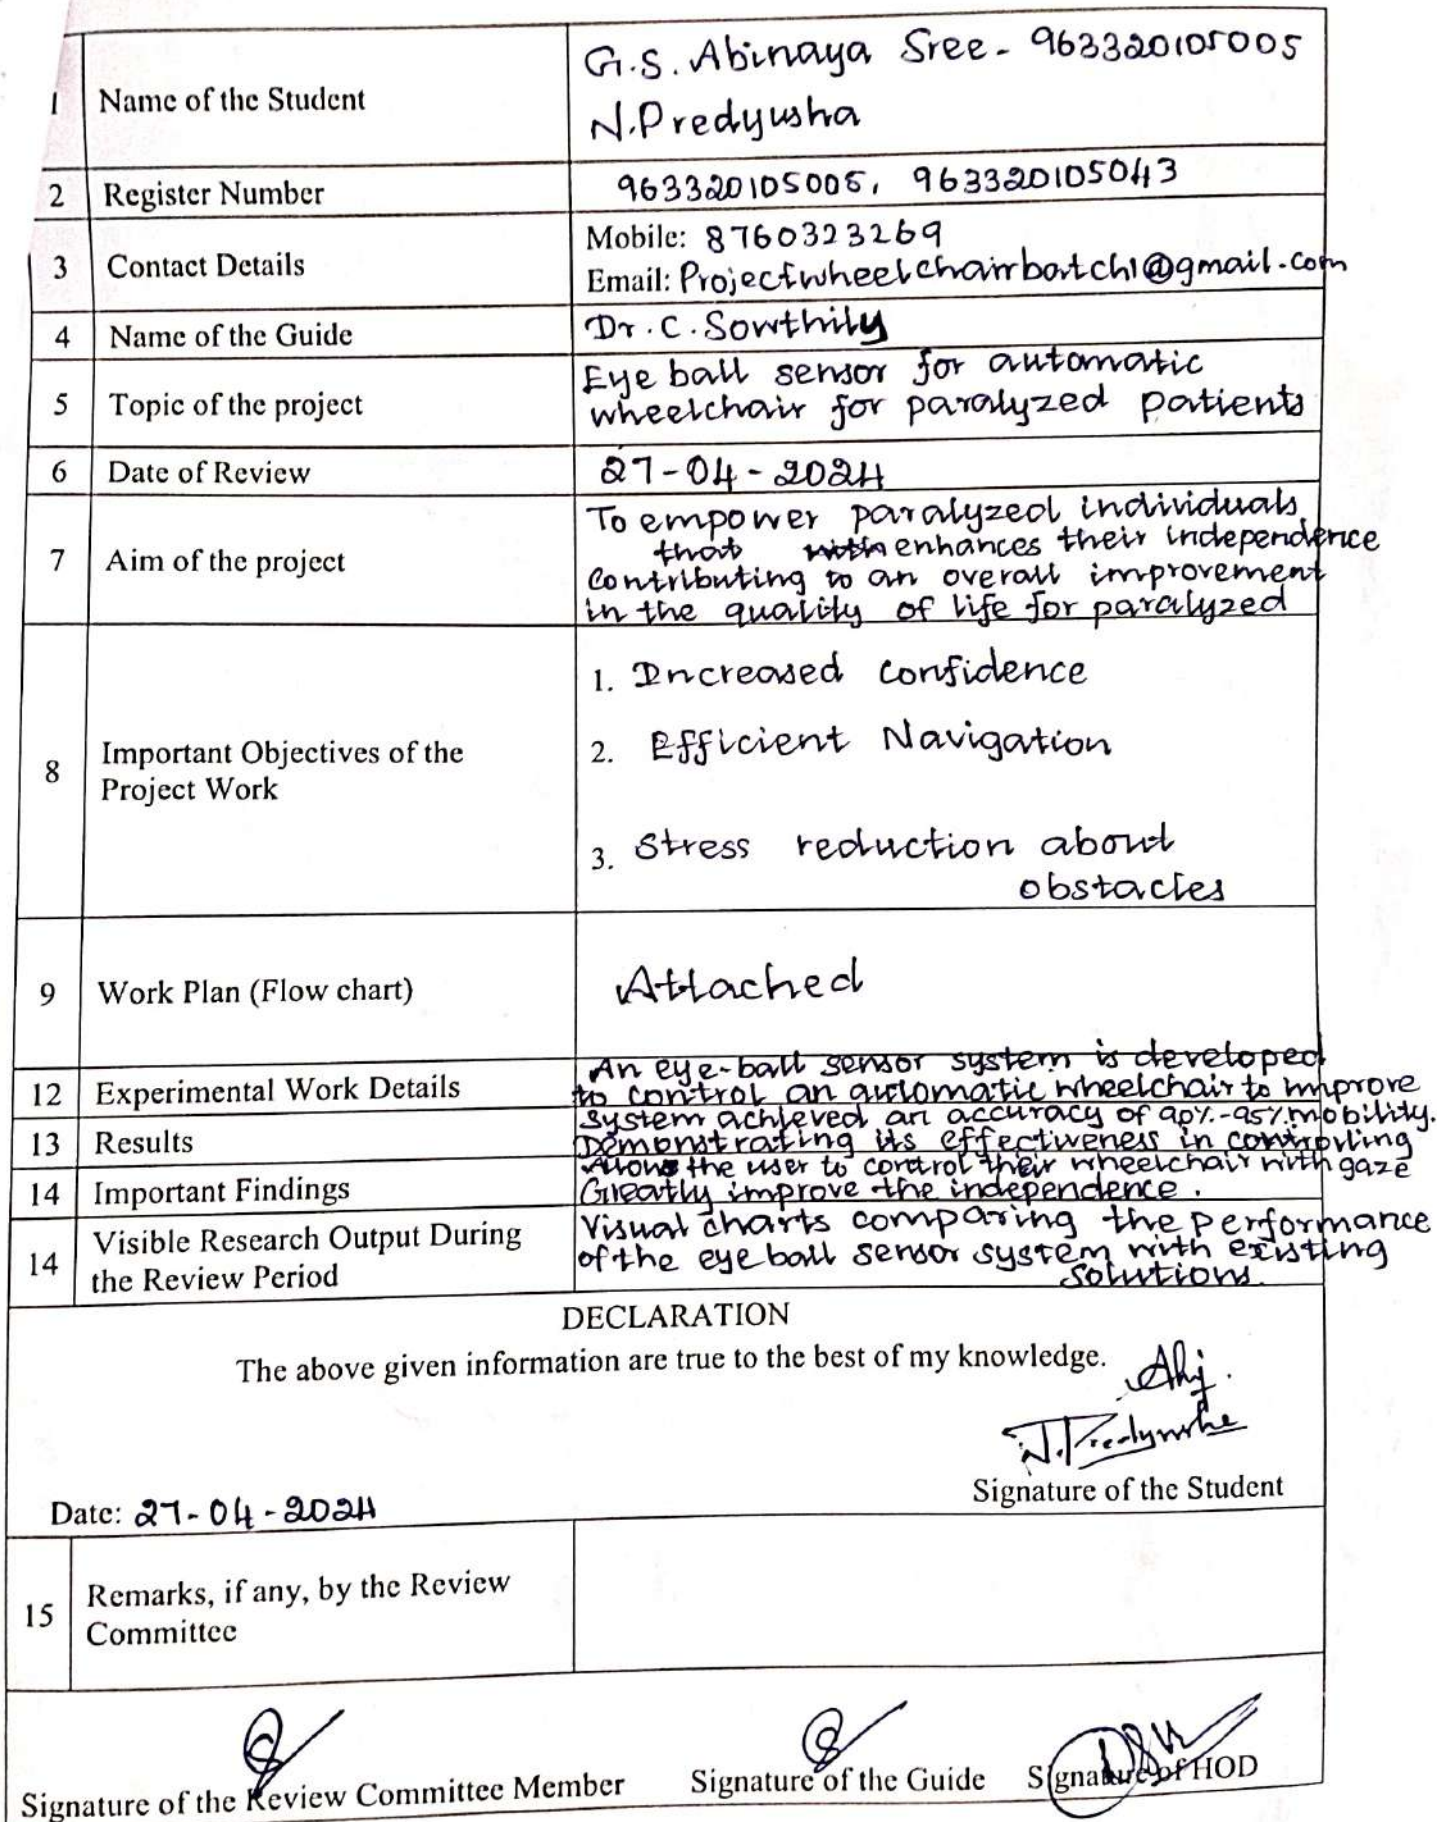 1 Name of the Student G.S. Abinaya Sree - 963320105005
N.Predyusha
2 Register Number 963320105005, 963320105043
3 Contact Details Mobile: 8760323269
Email: Projectwheelchairbatch1@gmail.com
4 Name of the Guide Dr. C. Sowthily
5 Topic of the project Eye ball sensor for automatic
wheelchair for paralyzed patients
6 Date of Review 27-04-2024
7 Aim of the project To empower paralyzed individuals
that enhances their independence
Contributing to an overall improvement
in the quality of life for paralyzed
8 Important Objectives of the
Project Work
1. Increased confidence
2. Efficient Navigation
3. Stress reduction about
obstacles
9 Work Plan (Flow chart) Attached
12 Experimental Work Details An eye-ball sensor system is developed
to control an automatic wheelchair to improve
mobility.
13 Results System achieved an accuracy of 90%-95%
Demonstrating its effectiveness in controlling
14 Important Findings Allows the user to control their wheelchair with gaze
Greatly improve the independence.
14 Visible Research Output During
the Review Period
Visual charts comparing the performance
of the eye ball sensor system with existing
solutions.
DECLARATION
The above given information are true to the best of my knowledge.
Abi.
N.Predyusha
Signature of the Student
Date: 27-04-2024
15 Remarks, if any, by the Review
Committee
Signature of the Review Committee Member Signature of the Guide Signature of HOD